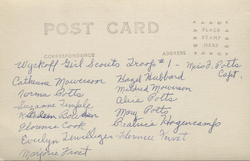 POST CARD
PLACE
STAMP
HERE
CORRESPONDENCE ADDRESS
Wyckoff Girl Scouts Troop #1 - Miss J. Potts
Capt.
Catherine Mowerson Hazel Hubbard
Norma Botts Mildred Mowerson
Suzanne Temple Alice Potts
Kathleen Mary Potts
Florence Cook Beatrice Hogencamp
Evelyn Terwilliger Florence Frost
Marjorie Frost